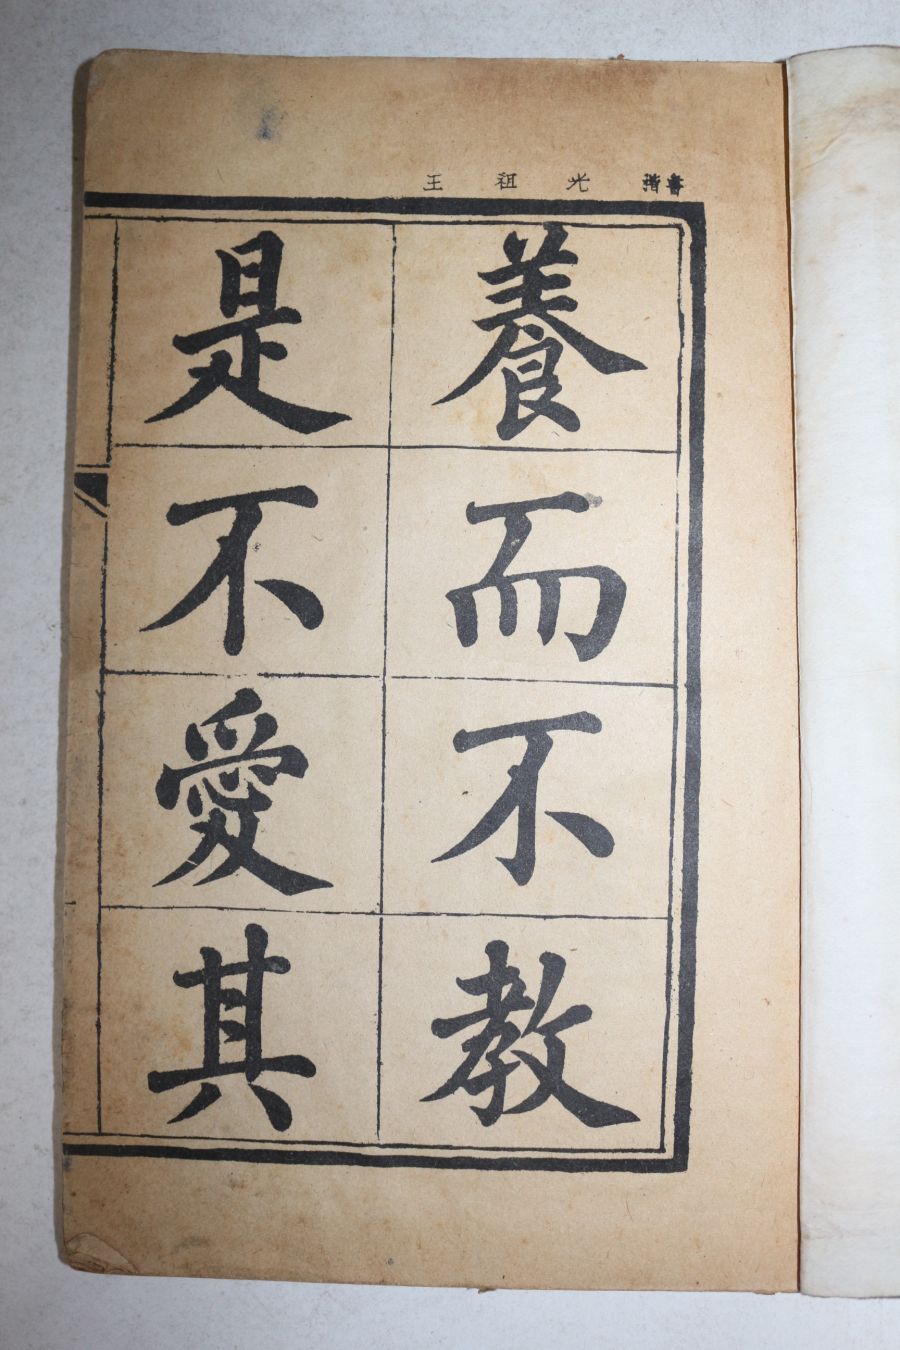 王祖光楷書
養而不教
是不愛其